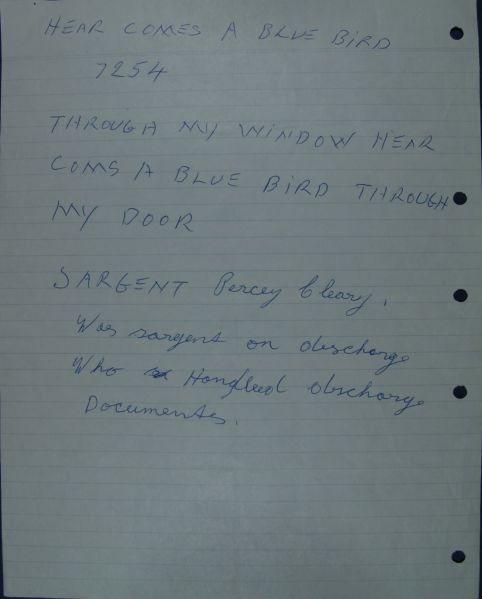 HEAR COMES A BLUE BIRD
7254
THROUGH MY WINDOW HEAR
COMS A BLUE BIRD THROUGH
MY DOOR
SARGENT Percey Cleary.
Was sargent on discharge
Who Handled discharge
Documentes.